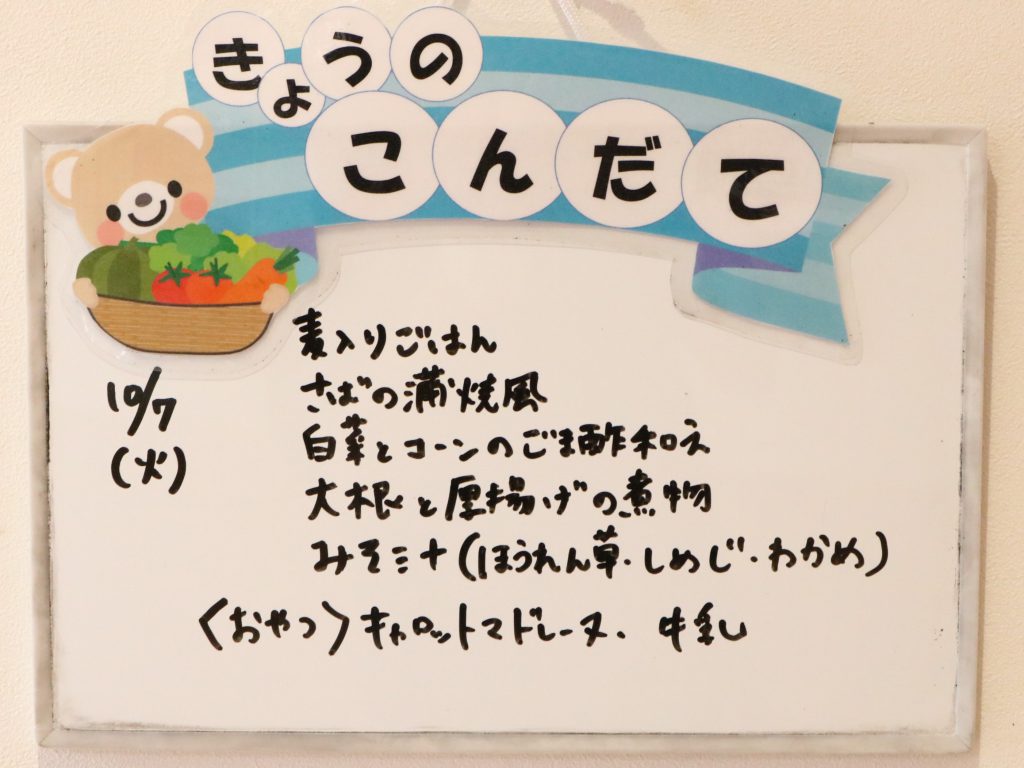 きょうの
こんだて
10/7
(火)
麦入りごはん
さばの蒲焼風
白菜とコーンのごま酢和え
大根と厚揚げの煮物
みそ汁(ほうれん草・しめじ・わかめ)
〈おやつ〉キャロットマドレーヌ、牛乳